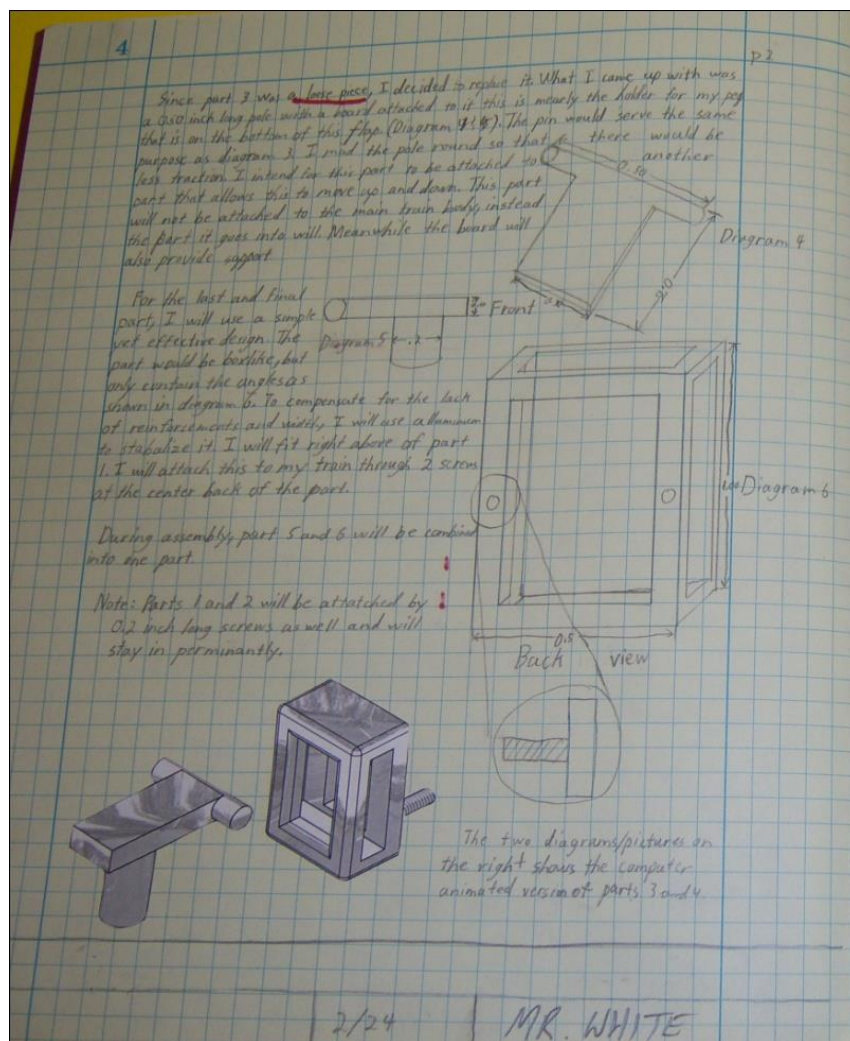 4
p 2
Since part 3 was a loose piece, I decided to replace it. What I came up with was
a 0.50 inch long pole with a board attached to it this is mearly the holder for my peg
that is on the bottom of this flap. (Diagram 4 5). The pin would serve the same
purpose as diagram 3. I mad the pole round so that there would be
less traction. I intend for this part to be attached to another
part that allows this to move up and down. This part
will not be attached to the main train body, instead
the part it goes into will. Meanwhile the board will
also provide support
0.50
Diagram 4
0.2
For the last and final
part, I will use a simple
yet effective design. The
part would be boxlike, but
only contain the angles as
shown in diagram 6. To compensate for the lack
of reinforcements and width, I will use alluminum
to stabalize it. I will fit right above of part
1. I will attach this to my train through 2 screws
at the center back of the part.
Front
Diagram 5
.2
Diagram 6
During assembly, part 5 and 6 will be combined
into one part.
Note: Parts 1 and 2 will be attatched by
0.2 inch long screws as well and will
stay in perminantly.
0.5
Back view
The two diagrams/pictures on
the right shows the computer
animated version of parts 3 and 4.
2/24
MR. WHITE